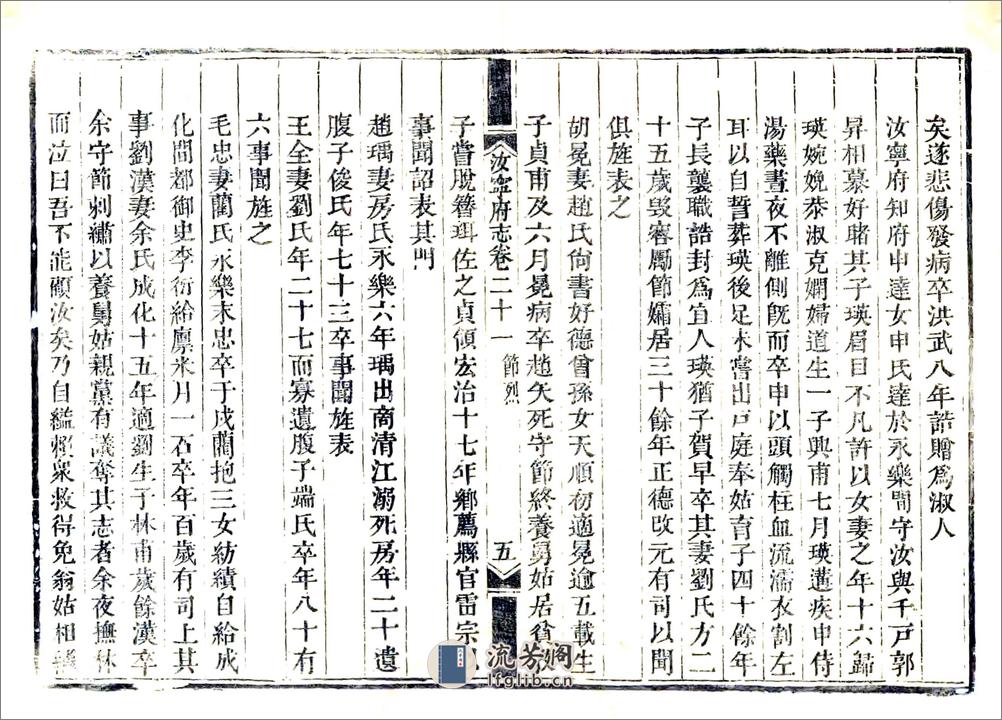 矣遂悲傷發病卒洪武八年誥贈爲淑人
汝寧府知府申達女申氏達於永樂間守汝與千戸郭
昇相慕好睹其子瑛眉目不凡許以女妻之年十六歸
瑛婉娩恭淑克嫻婦道生一子興甫七月瑛遘疾申侍
湯藥晝夜不離側旣而卒申以頭觸柱血流濡衣割左
耳以自誓葬瑛後足未嘗出戸庭奉姑育子四十餘年
子長襲職誥封爲宜人瑛猶子賀早卒其妻劉氏方二
十五歲毁容厲節孀居三十餘年正德改元有司以聞
俱旌表之
胡冕妻趙氏尙書好德曾孫女天順初適冕逾五載生
子貞甫及六月冕病卒趙矢死守節終養舅姑居貧
汝寧府志卷二十一 節烈 五
子嘗脫簪珥佐之貞領宏治十七年鄕薦縣官雷宗
事聞詔表其門
趙瑀妻房氏永樂六年瑀出商清江溺死房年二十遺
腹子俊氏年七十三卒事聞旌表
王全妻劉氏年二十七而寡遺腹子端氏卒年八十有
六事聞旌之
毛忠妻藺氏永樂末忠卒于戍藺抱三女紡績自給成
化間都御史李衍給廪米月一石卒年百歲有司上其
事劉漢妻余氏成化十五年適劉生子林甫歲餘漢卒
余守節剌繡以養舅姑親黨有議奪其志者余夜撫林
而泣曰吾不能顧汝矣乃自縊賴衆救得免翁姑相
流芳閣
lfglib.cn